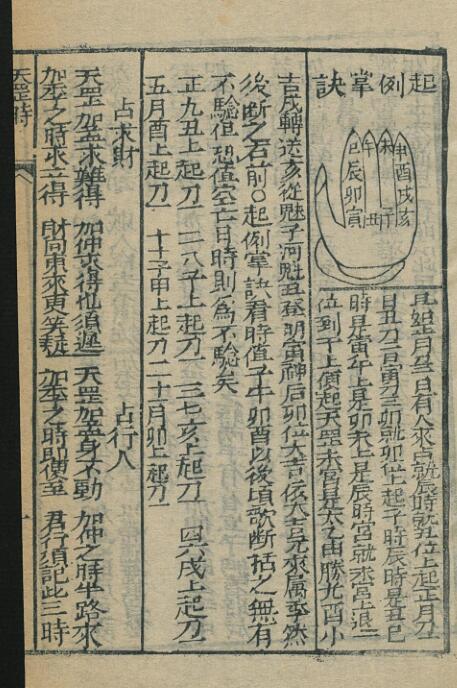 起例掌訣
申酉戌亥
未 子
午 丑
巳辰卯寅
凡如正月生日有人來占就辰時就丑位上起正月刀
日丑刀二日寅刀三卯就卯位上起子時辰時是丑巳
時是寅午上是卯未上是辰時宮就來宮上退二
位到干上值起天罡未宮是太乙由勝光酉小
吉戌轉送亥從魁子河魁丑登明寅神后卯位大吉依大吉元來屬季然
後断之右前〇起例掌訣看時值子午卯酉以後頃歌断括之無有
不驗但恐值空亡日時則為不驗矣
正九丑上起刀一 二八子上起刀一 三七亥上起刀一 四六戌上起刀一
五月酉上起刀一 十子甲上起刀一 十二月卯上起刀一
占求財 占行人
天罡加孟求難得 加仲求得也須遲 天罡加孟身不動 加仲之時半路來
加季之時求立得 財向東來更笑疑 加季之時即便至 君行須記此三時
天罡時